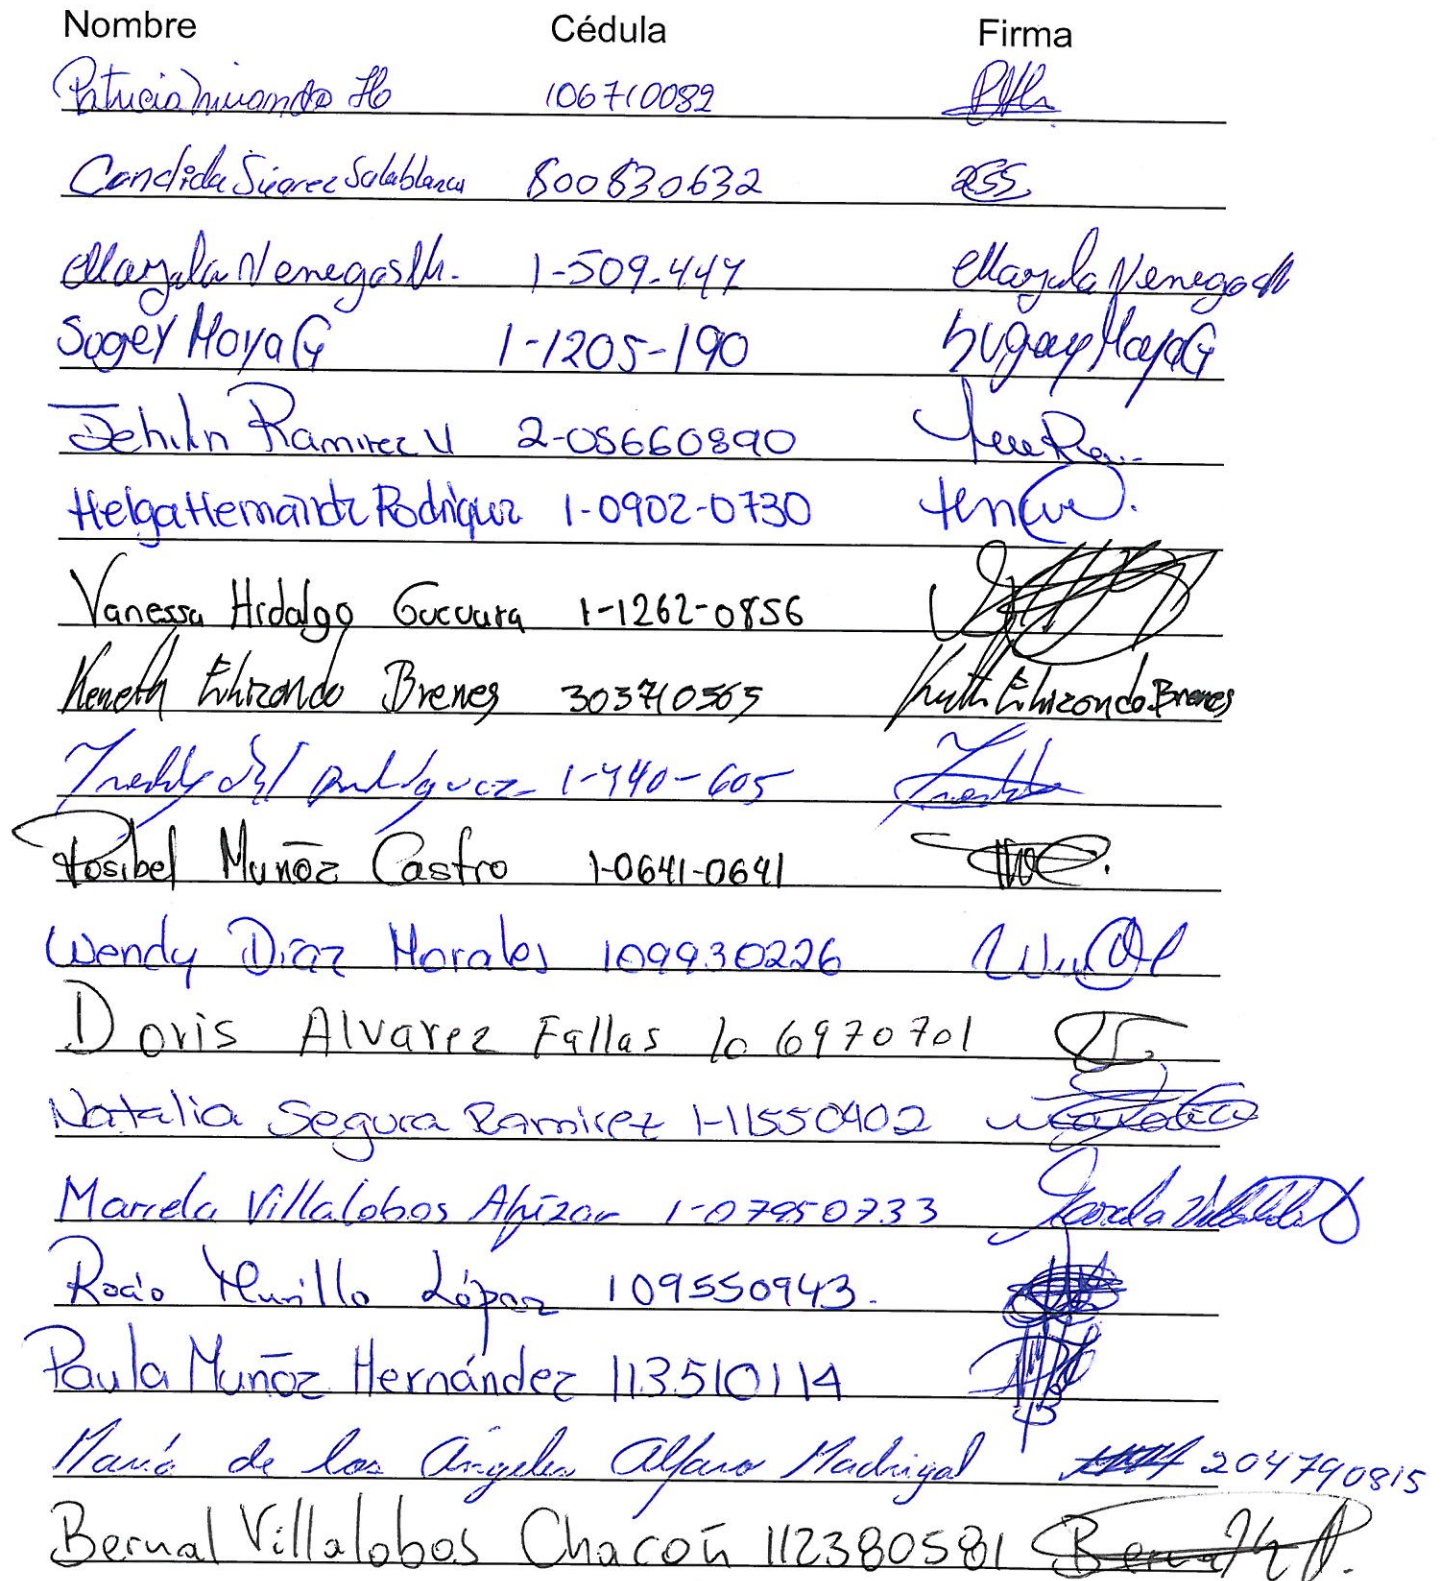 Nombre Cédula Firma
Patricia Miranda Ho 106710082
Candida Súarez Salablanca 800830632
Mayela Venegas M. 1-509-447 Mayela Venegas M
Sugey Moya G 1-1205-190 Sugey Moya G
Jehiln Ramirez V 2-05660890
Helga Hernández Rodríguez 1-0902-0730
Vanessa Hidalgo Guevara 1-1262-0856
Keneth Elizondo Brenes 303710565 Keneth Elizondo Brenes
Freddy Rodríguez 1-440-605
Rosibel Muñoz Castro 1-0641-0641
Wendy Díaz Morales 109930226
Doris Alvarez Fallas 106970701
Natalia Segura Ramirez 1-11550402
Marcela Villalobos Alpízar 1-07950733 Marcela Villalobos
Rocío Murillo López 109550943.
Paula Muñoz Hernández 113510114
María de los Ángeles Alfaro Madrigal 204790815
Bernal Villalobos Chacón 112380581